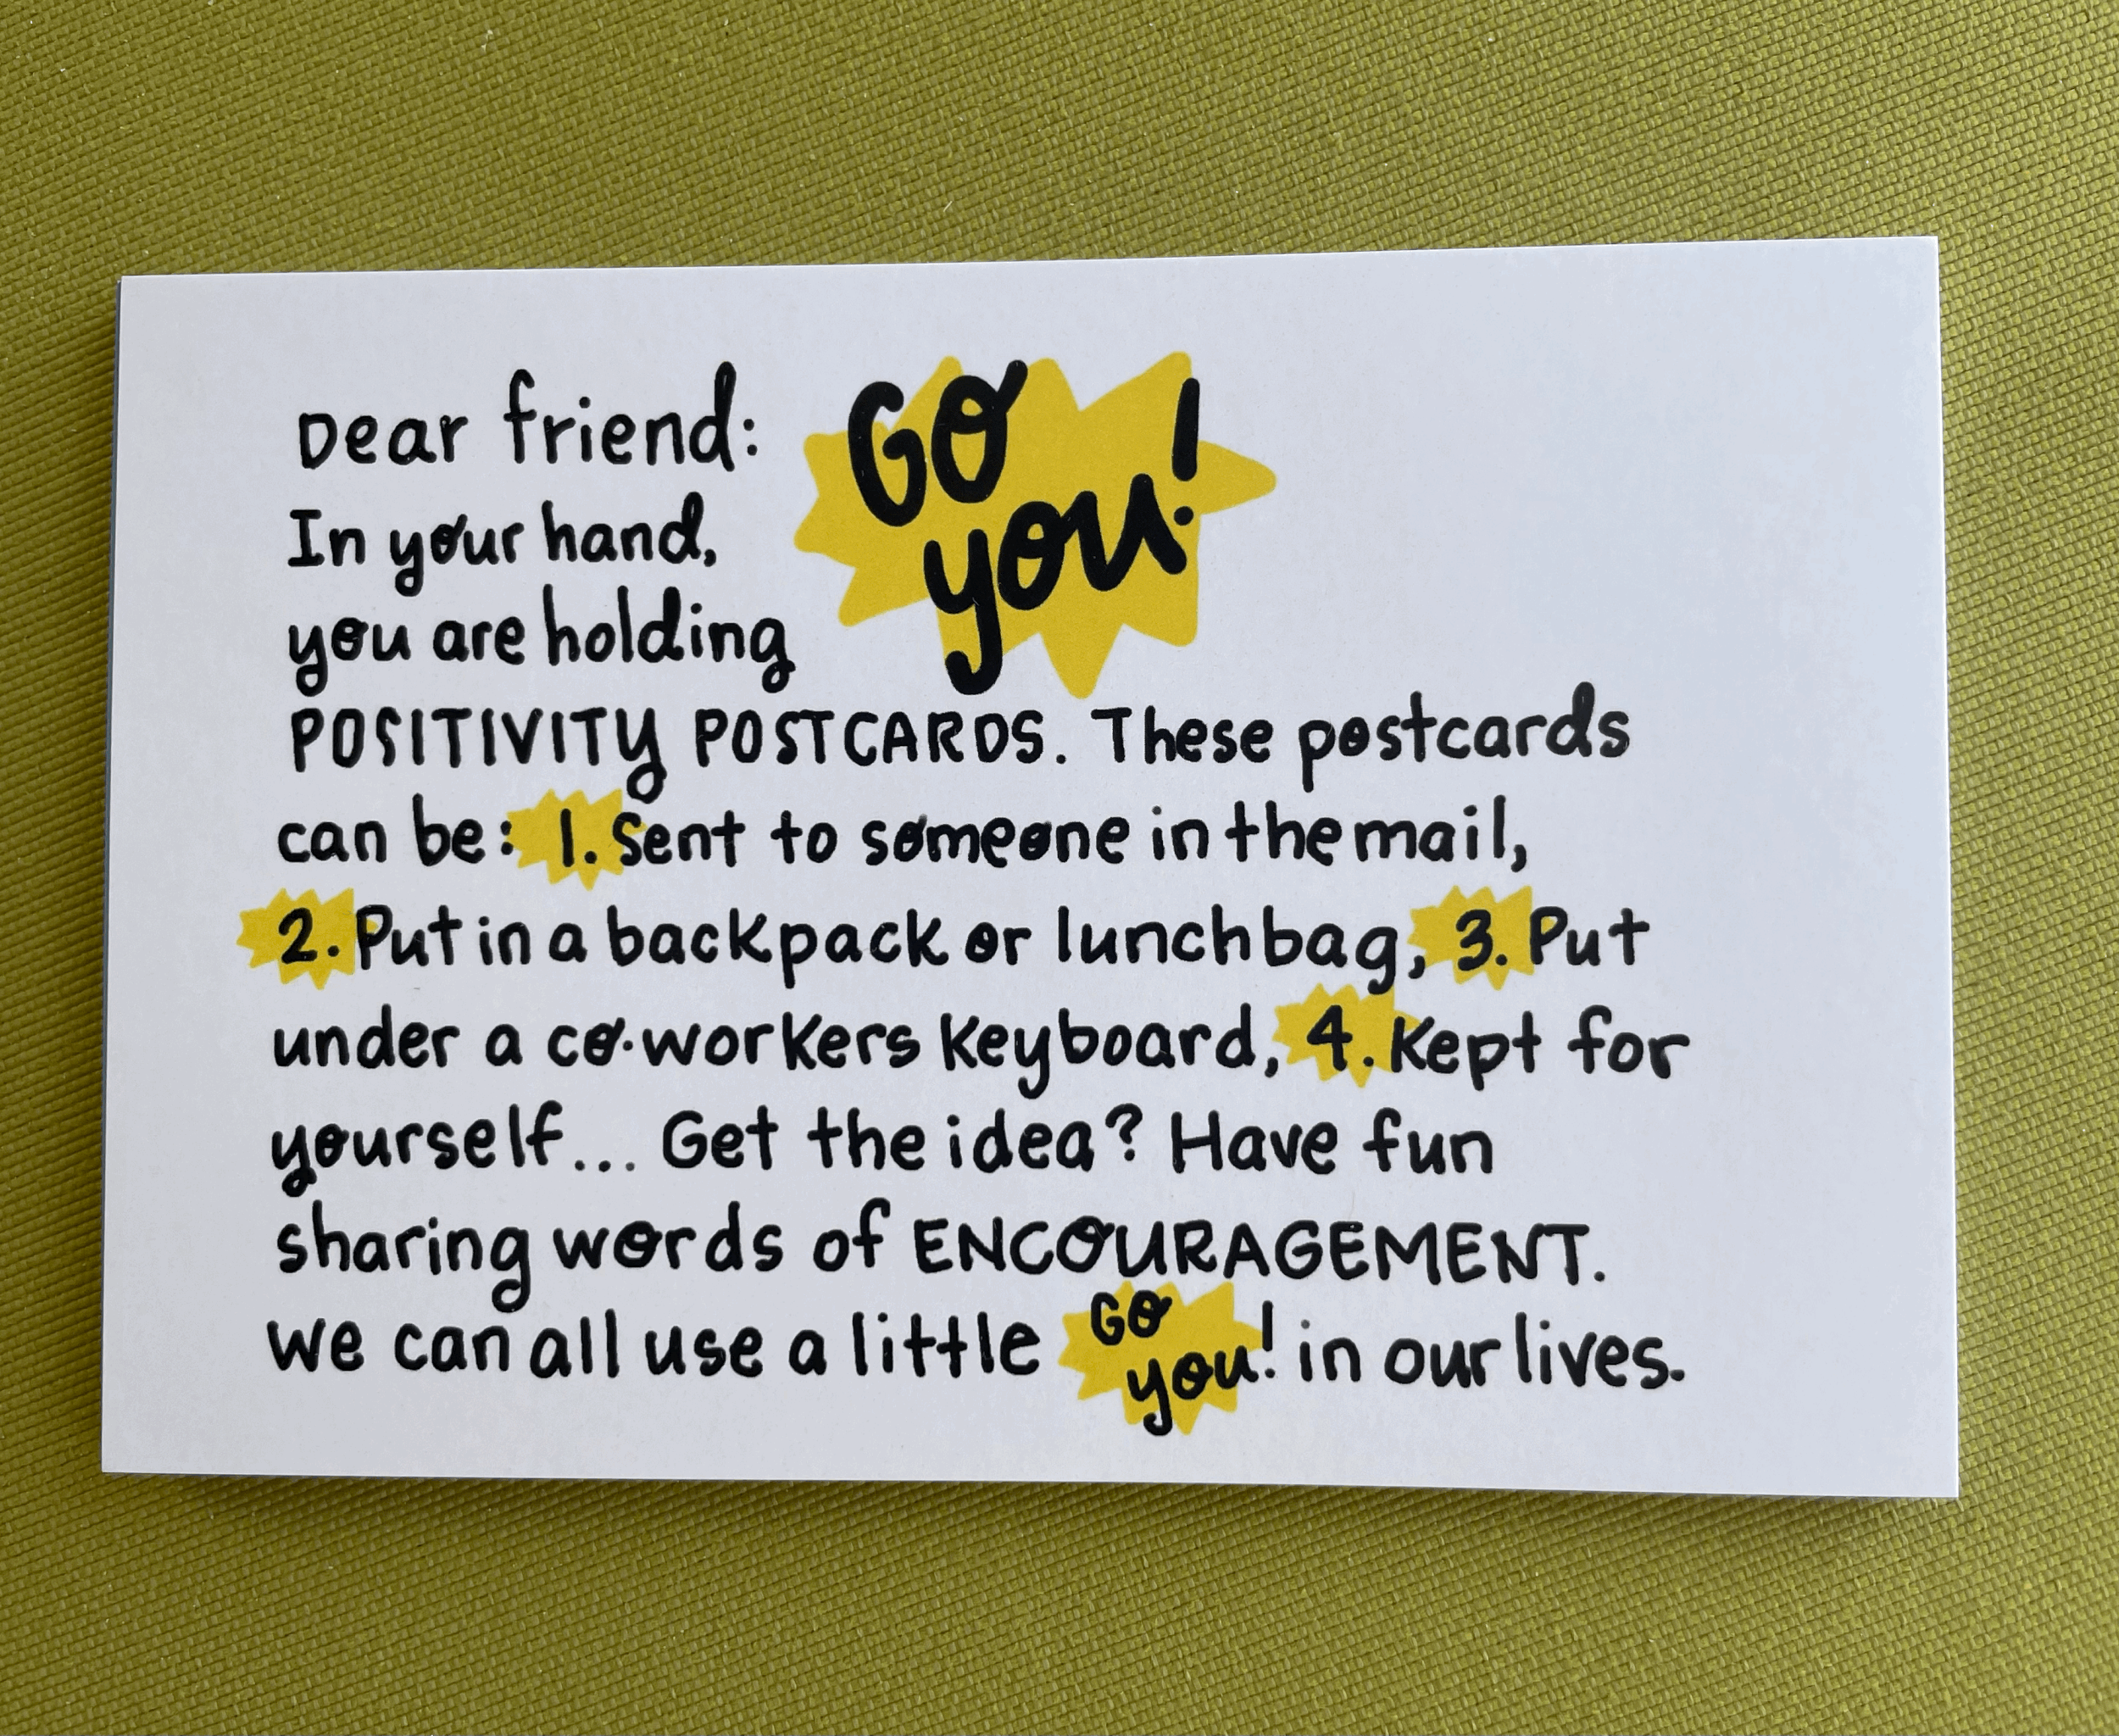 Dear friend:
GO
you!
In your hand,
you are holding
POSITIVITY POSTCARDS. These postcards
can be: 1. Sent to someone in the mail,
2. Put in a backpack or lunch bag, 3. Put
under a co-workers keyboard, 4. Kept for
yourself... Get the idea? Have fun
sharing words of ENCOURAGEMENT.
We can all use a little GO you! in our lives.